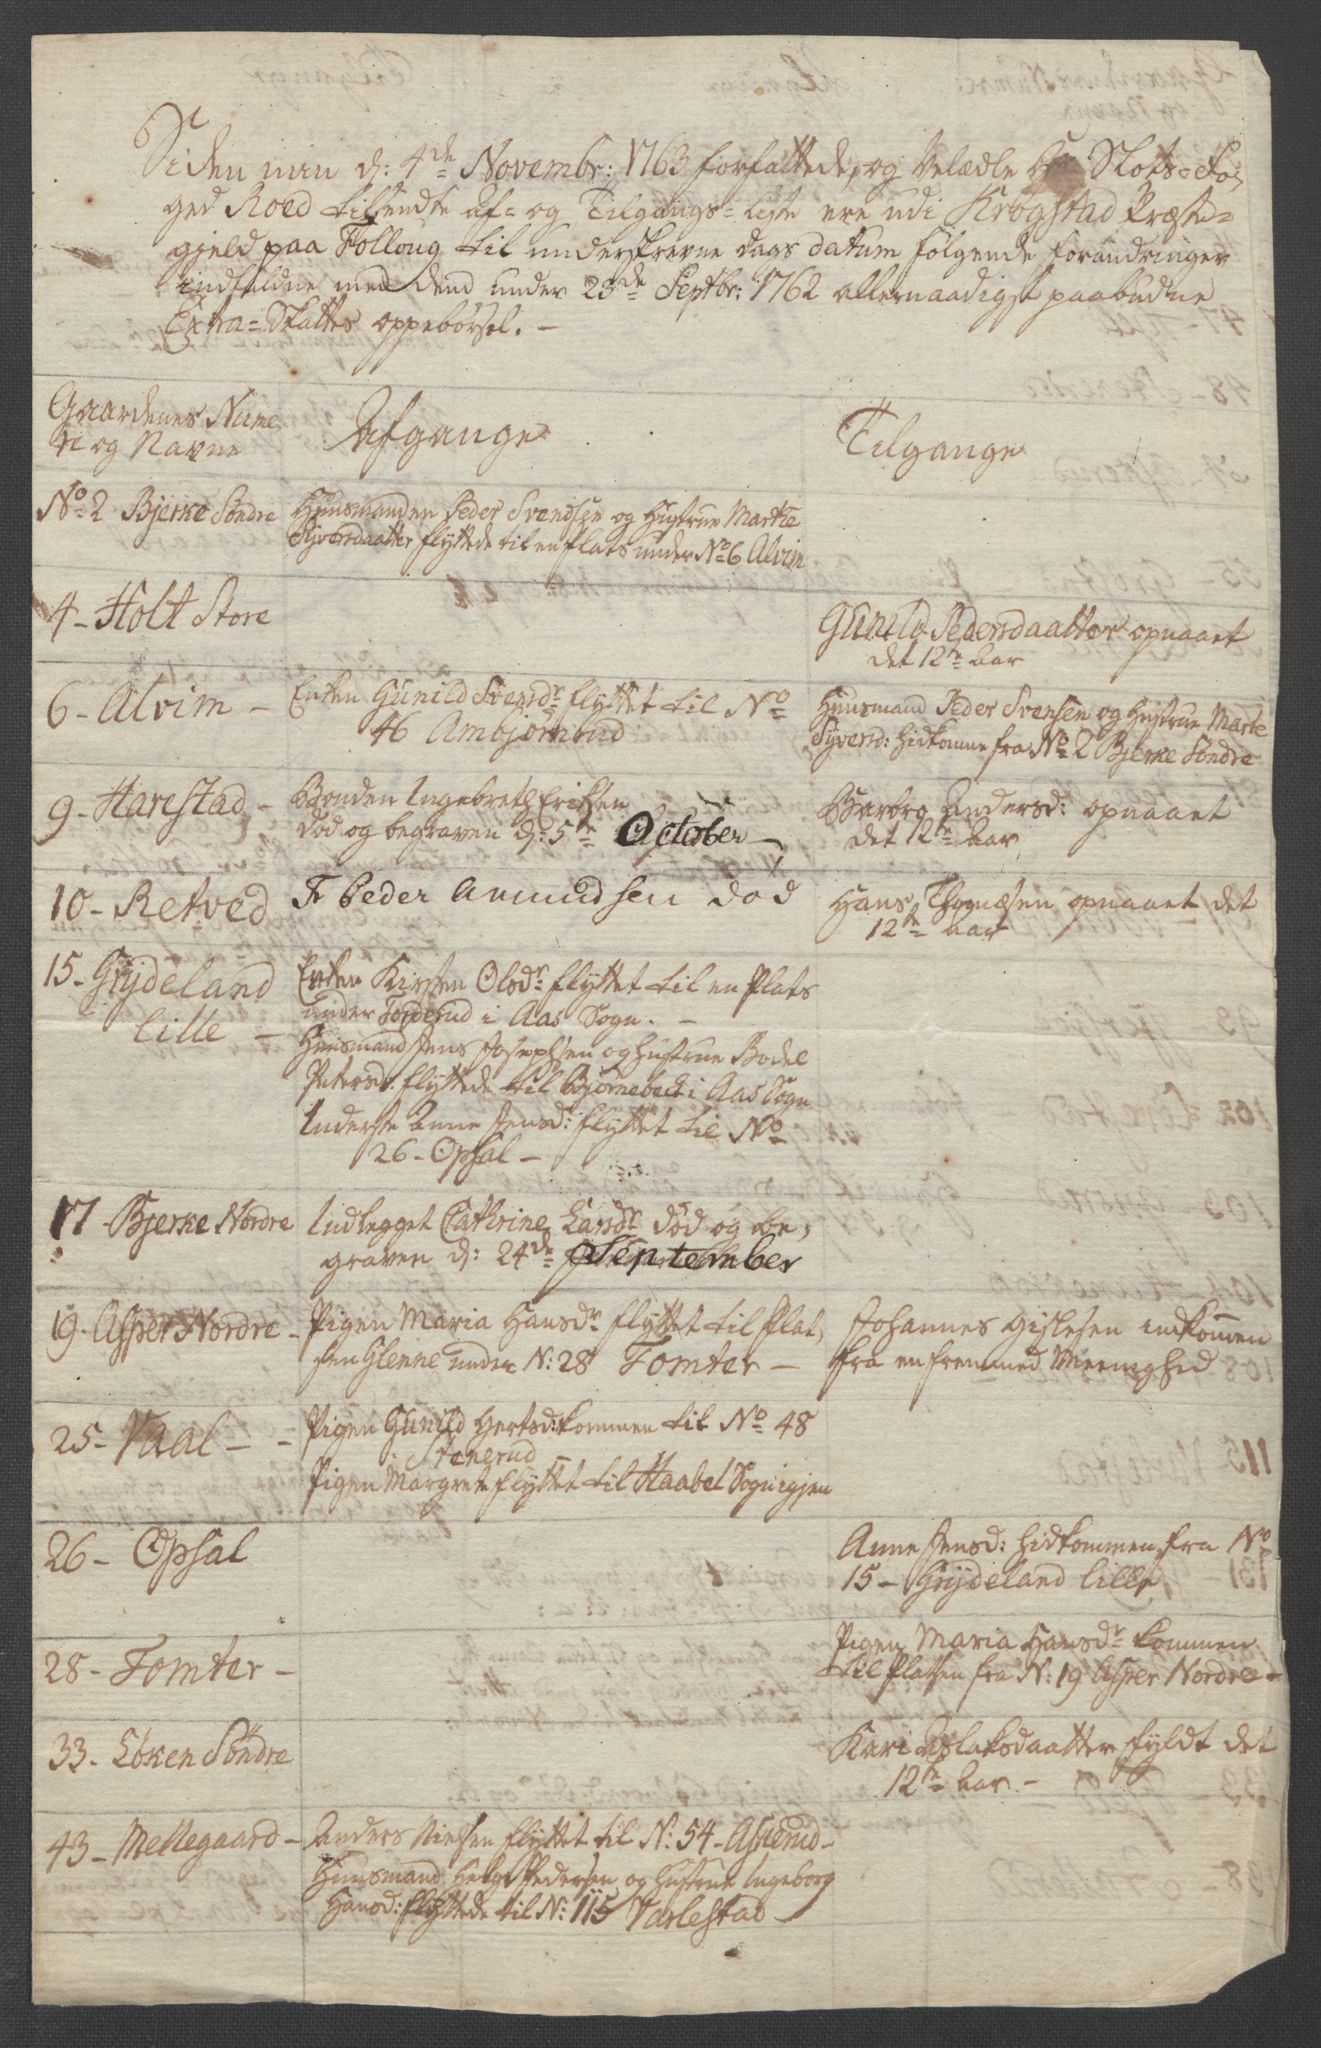 Siden min d: 4de Novembr: 1763 forfattede, og Velædle Hr Slots-Fo-
ged Roed tilsendte af- og Tilgangs-Liste ere udi Krogstad Præste-
gjeld paa Folloug til underskrevne dags datum følgende forandringer
indfaldne med dend under 23de Septbr: 1762 allernaadigst paabudne
Extra-Skattes oppebørsel. -
Gaardenes Nume
re og Navne
Afgange
Tilgange
No 2 Bjerke Søndre
Huusmanden Peder Svendsen og Hustrue Marthe
Syversdaatter flyttede til en Plats under No 6 Alvim
4 - Holt Store
Gunild Pedersdaatter opnaaet
det 12te Aar
6 - Alvim -
Enken Gunild Svensdr flyttet til No
46 Ambjørnrud
Huusmand Peder Svensen og Hustrue Marte
Syversd: hidkomne fra No 2 Bjerke Søndre
9 - Harestad -
Bonden Ingebreth Erichsen
død og begraven d: 5te October -
Barbro Andersd: opnaaet
det 12te Aar
10 - Retved
Peder Amundsen død
Hans Thognæsen opnaaet det
12te Aar
15 - Grydeland
Lille -
Enken Kirsten Olsdr flyttet til en Plats
under Torderud i Aas Sogn. -
Huusmand Jens Josephsen og hustrue Bodel
Petersd: flyttede til Bjørnebeck i Aas Sogn
Inderste Anne Jensd: flyttet til No
26 - Opsal -
17 - Bjerke Nordre
Indlegget Cathrine Larsdr død og be-
graven d: 24de September
19 - Asper Nordre -
Pigen Maria Hansdr flyttet til Plat-
sen Glenne under N: 28 Tomter -
Johannes Gislesen indkommen
fra en fremmed Meenighed
25 - Vaal - -
Pigen Gunild Hertsd: kommen til No 48
Stenerud -
Pigen Margrete flyttet til Haabel Sogn igjen
26 - Opsal
Anne Jensd: hidkommen fra No
15 - Grydeland Lille
28 - Tomter -
Pigen Maria Hansdr kommen
til Platsen fra N: 19 Asper Nordre -
33 - Løken Søndre
Kari Aslaksdaatter fyldt det
12te Aar -
43 - Mellegaard -
Anders Nielsen flyttet til N: 54 - Asperud -
Huusmand Helge Pedersen og Hustrue Ingeborg
Hansd: flyttede til N: 115 Varlestad -